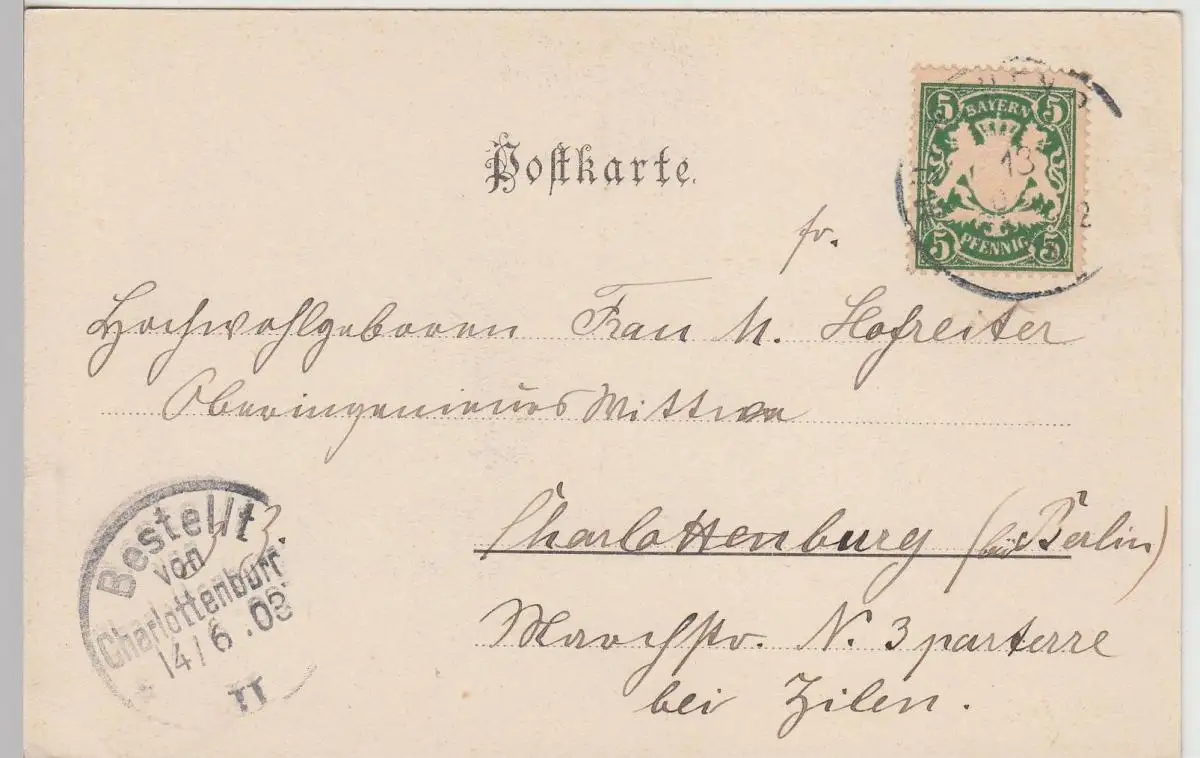 Postkarte.
5 BAYERN 5
5 PFENNIG 5
13
2
fr.
Hochwohlgeboren Frau M. Hofreiter
Oberingenieurs Wittwe
Charlottenburg (bei Berlin)
Marchstr. N. 3 parterre
bei Zilen.
Bestellt
von
Charlottenburg
14/6.03